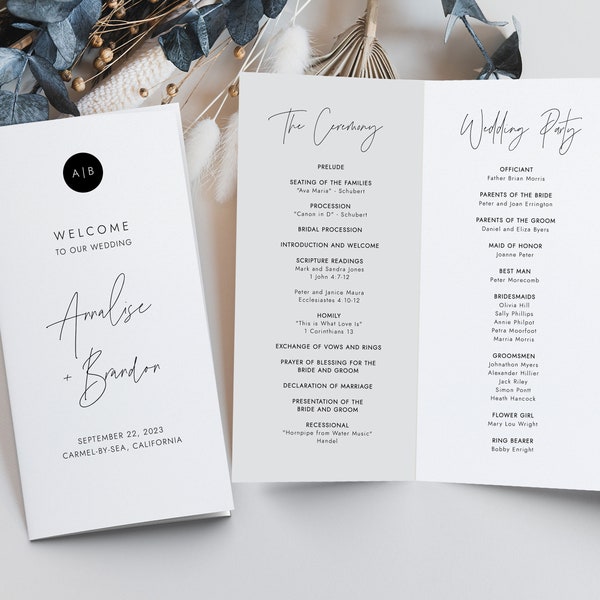 A|B
WELCOME
TO OUR WEDDING
Annalise
+ Brandon
SEPTEMBER 22, 2023
CARMEL-BY-SEA, CALIFORNIA
The Ceremony
PRELUDE
SEATING OF THE FAMILIES
"Ava Maria" - Schubert
PROCESSION
"Canon in D" - Schubert
BRIDAL PROCESSION
INTRODUCTION AND WELCOME
SCRIPTURE READINGS
Mark and Sandra Jones
1 John 4:7-12
Peter and Janice Maura
Ecclesiastes 4:10-12
HOMILY
"This is What Love Is"
1 Corinthians 13
EXCHANGE OF VOWS AND RINGS
PRAYER OF BLESSING FOR THE
BRIDE AND GROOM
DECLARATION OF MARRIAGE
PRESENTATION OF THE
BRIDE AND GROOM
RECESSIONAL
"Hornpipe from Water Music"
Handel
Wedding Party
OFFICIANT
Father Brian Morris
PARENTS OF THE BRIDE
Peter and Joan Errington
PARENTS OF THE GROOM
Daniel and Eliza Byers
MAID OF HONOR
Joanne Peter
BEST MAN
Peter Morecomb
BRIDESMAIDS
Olivia Hill
Sally Phillips
Annie Philpot
Petra Moorfoot
Marria Morris
GROOMSMEN
Johnathon Myers
Alexander Hillier
Jack Riley
Simon Pontt
Heath Hancock
FLOWER GIRL
Mary Lou Wright
RING BEARER
Bobby Enright